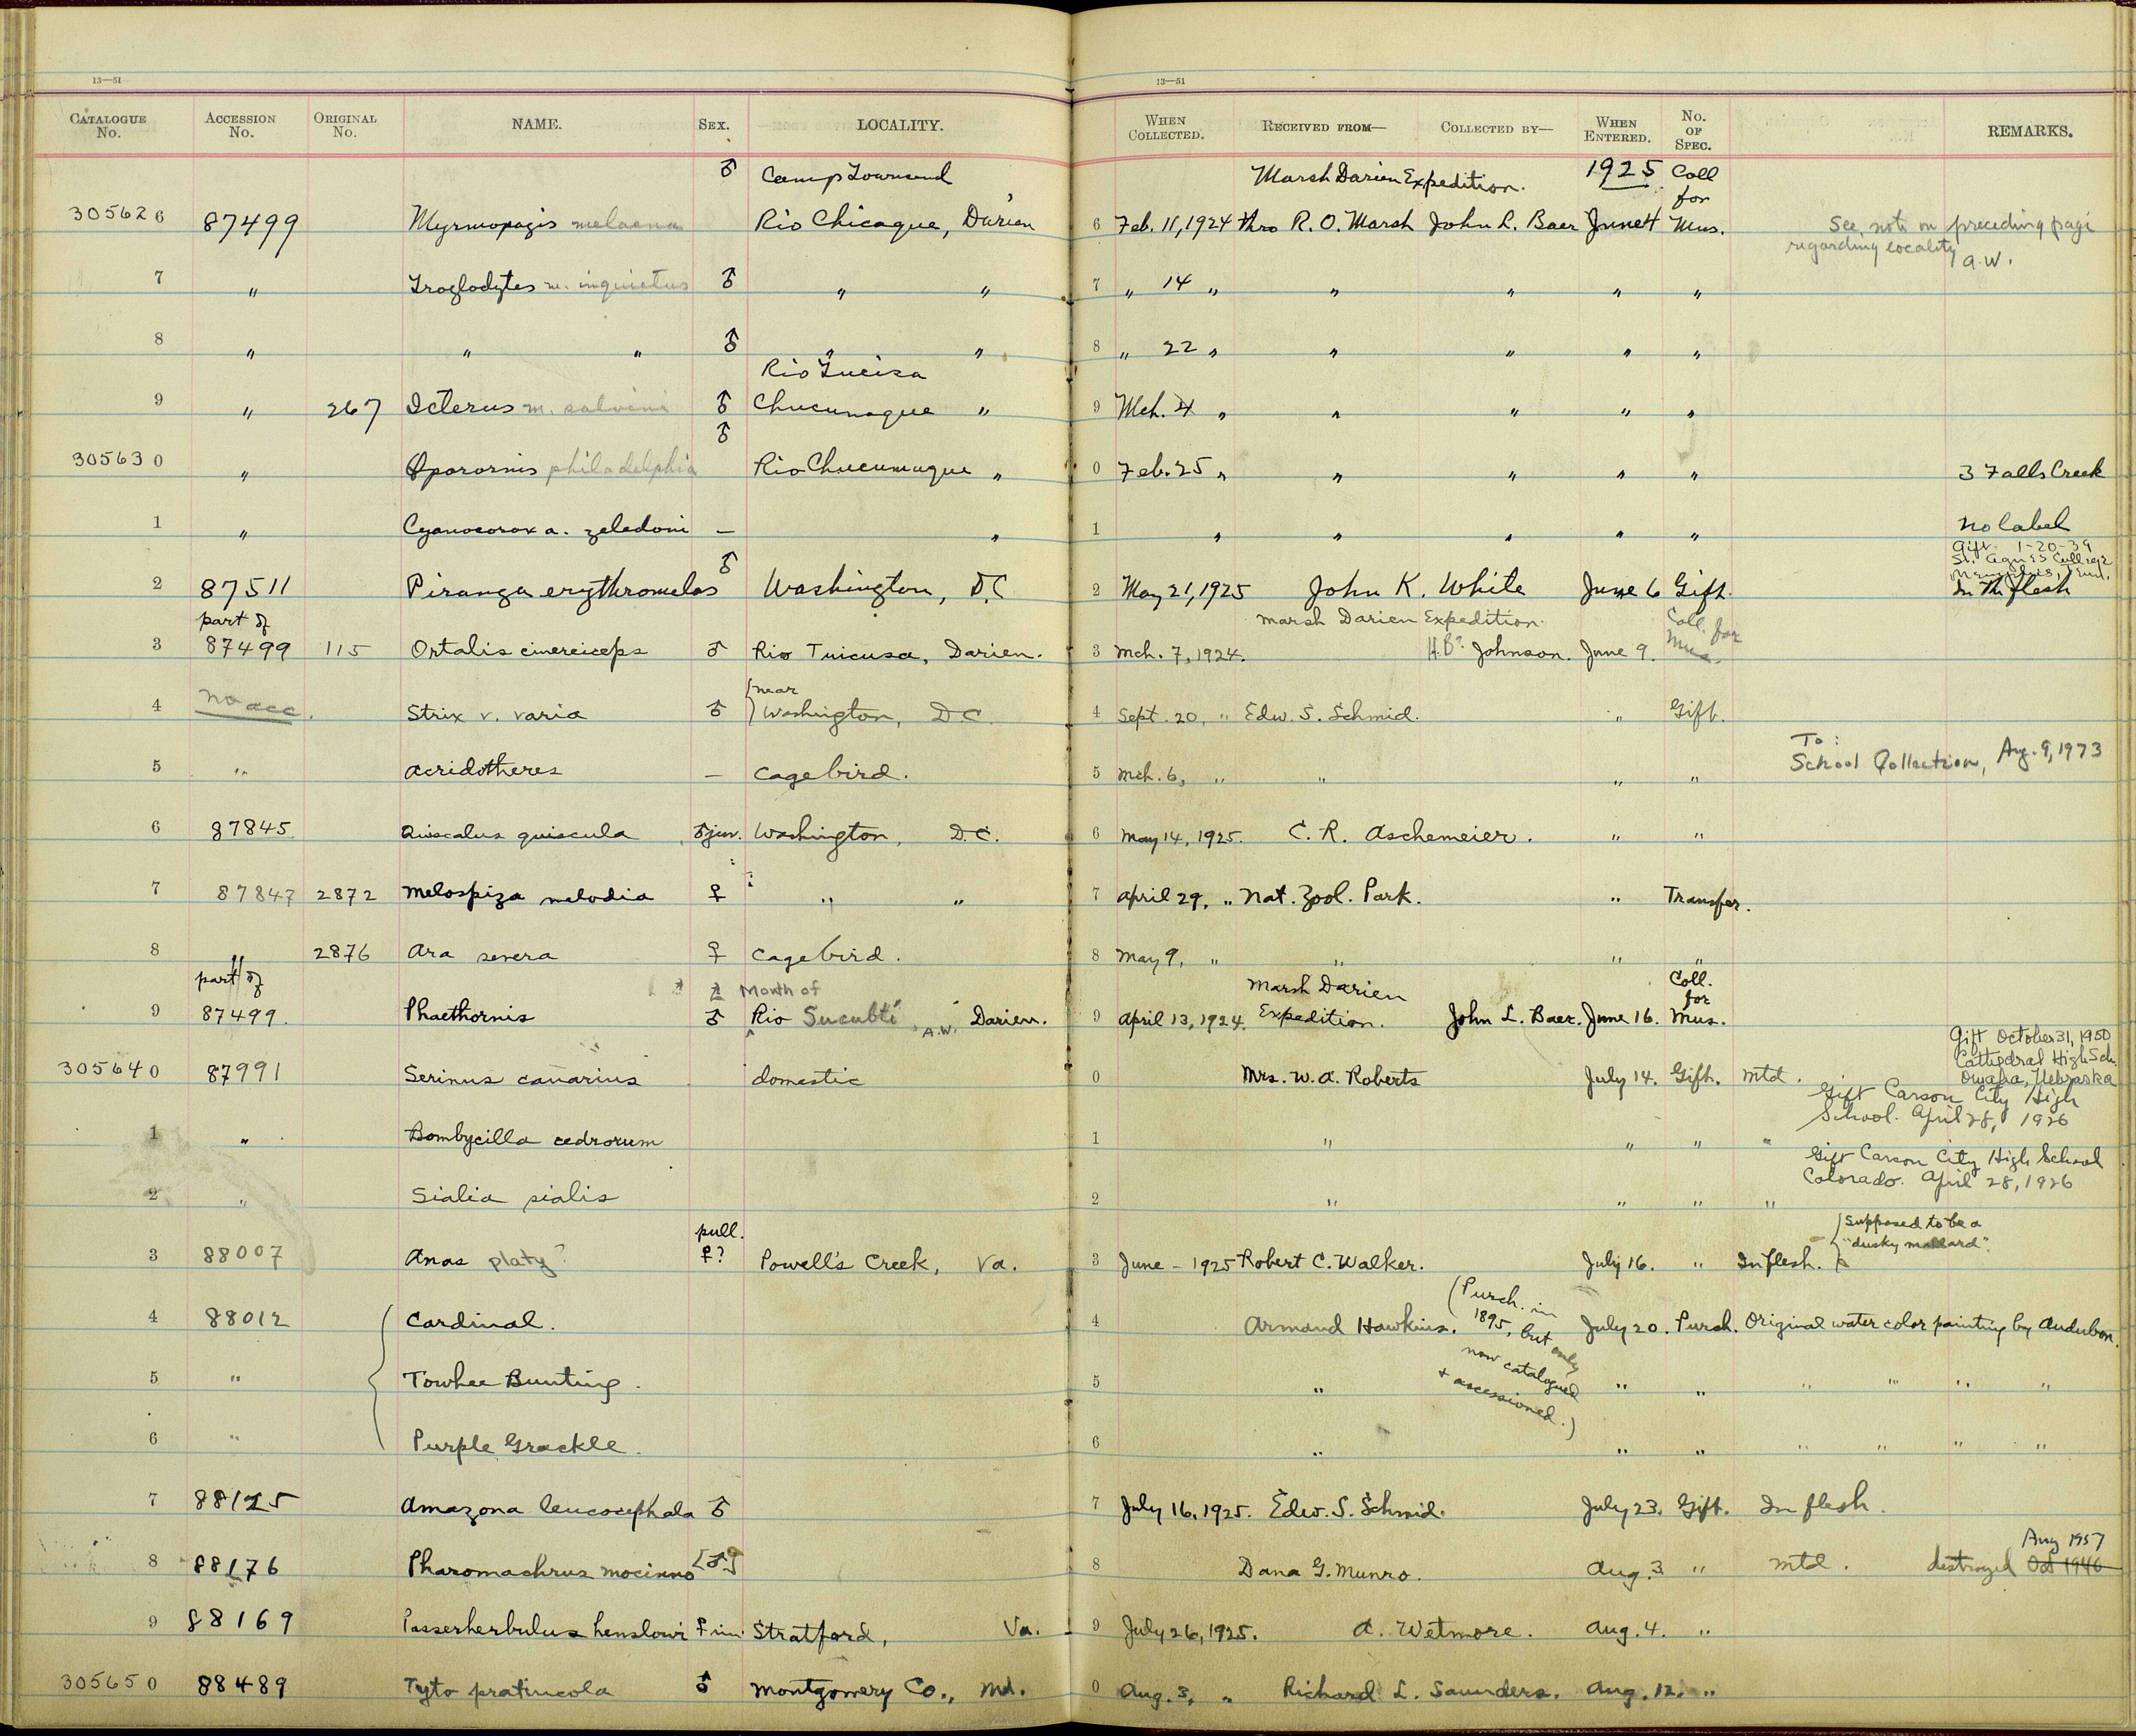 13—51 13—51
CATALOGUE No. ACCESSION No. ORIGINAL No. NAME. SEX. LOCALITY. WHEN COLLECTED. RECEIVED FROM— COLLECTED BY— WHEN ENTERED. No. OF SPEC. REMARKS.
♂ Camp Townsend Marsh Darien Expedition. 1925 Coll for
305626 87499 Myrmopagis melaena Rio Chicaque, Darien 6 Feb. 11, 1924 thro R. O. Marsh John L. Baer June 4 Mus. See note on preceding page
regarding locality A.W.
7 " Troglodytes m. inquietus ♂ " " 7 " 14 " " " " "
8 " " " ♂ " " 8 " 22 " " " " "
Rio Tucisa
9 " 267 Icterus m. salvini ♂ Chucunaque " 9 Mch. 4 " " " " "
♂
305630 " Oporornis philadelphia Rio Chucunaque " 0 Feb. 25 " " " " " 3 Falls Creek
1 " Cyanocorax a. zeledoni — " 1 " " " " " No label
Gift 1-20-39
St. Agnes College
Memphis, Tenn.
2 87511 Piranga erythromelas ♂ Washington, D.C 2 May 21, 1925 John K. White June 6 Gift. In the flesh
part of Marsh Darien Expedition. Coll. for
3 87499 115 Ortalis cinereiceps ♂ Rio Tuicusa, Darien. 3 Mch. 7, 1924. H.B? Johnson. June 9. Mus.
{near
4 No acc. Strix v. varia ♂ Washington, D C 4 Sept. 20, " Edw. S. Schmid. " Gift.
To:
5 " Acridotheres — cagebird. 5 Mch. 6, " " " " School Collection, Aug. 9, 1973
6 87845 Quiscalus quiscula ♂juv. Washington, D.C. 6 May 14, 1925. C. R. Aschemeier. " "
7 87847 2872 Melospiza melodia ♀ " " 7 April 29, " Nat. Zool. Park. " Transfer.
8 " 2876 Ara severa ♀ cagebird. 8 May 9, " " " "
part of Mouth of Marsh Darien Coll. for
9 87499. Phaethornis ♂ Rio Sucubti A.W. Darien. 9 April 13, 1924. Expedition. John L. Baer. June 16. Mus.
Gift October 31, 1950
Cathedral High Sch.
Omaha, Nebraska
305640 87991 Serinus canarius domestic 0 Mrs. W. A. Roberts July 14. Gift. mtd.
Gift Carson City High
School. April 28, 1926
1 " Bombycilla cedrorum 1 " " " "
Gift Carson City High School
Colorado. April 28, 1926
2 " Sialia sialis 2 " " " "
pull. {supposed to be a
"dusky mallard".
3 88007 Anas platy? ♀? Powell's Creek, Va. 3 June – 1925 Robert C. Walker. July 16. " In flesh.
4 88012 Cardinal. 4 Armand Hawkins. (Purch. in 1895, but only now catalogued + accessioned.) July 20. Purch. Original water color painting by Audubon.
5 " Towhee Bunting. 5 " " " " " " "
6 " Purple Grackle. 6 " " " " " " "
7 88125 Amazona leucocephala ♂ 7 July 16, 1925. Edw. S. Schmid. July 23. Gift. In flesh.
Aug 1957
8 88176 Pharomachrus mocinno [♂] 8 Dana G. Munro. Aug. 3 " mtd. destroyed Oct 1946
9 88169 Passerherbulus henslowi ♀ im. Stratford, Va. 9 July 26, 1925. A. Wetmore. Aug. 4. "
305650 88489 Tyto pratincola ♂ Montgomery Co., Md. 0 Aug. 3, " Richard L. Saunders. Aug. 12. "